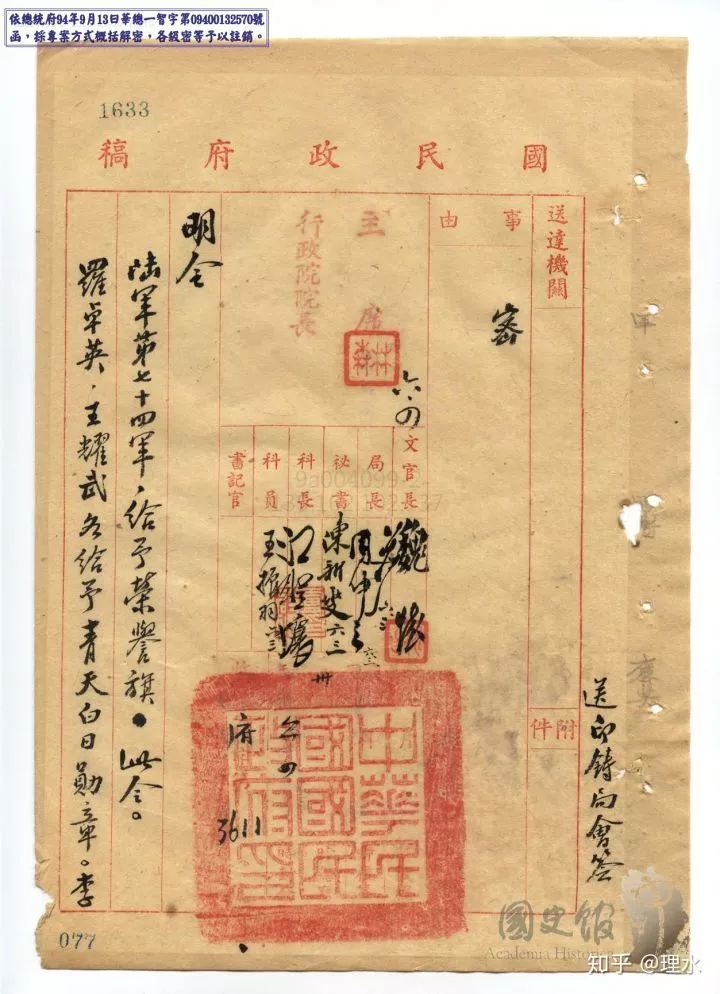 依總統府94年9月13日華總一智字第09400132570號
函，採專案方式概括解密，各級密等予以註銷。
1633
國民政府稿
送達機關
附件
送印鑄局會簽
事由
密
主席
行政院院長
林森
六、四
文官長
魏懷
局長
秘書
陳新燮 六三
科長
科員
書記官
中華民國國民政府印
府
3611
明令
陸軍第七十四軍，給予榮譽旗。此令。
羅卓英、王耀武各給予青天白日勳章。李
077
國史館
Academia Historica
知乎 @理水